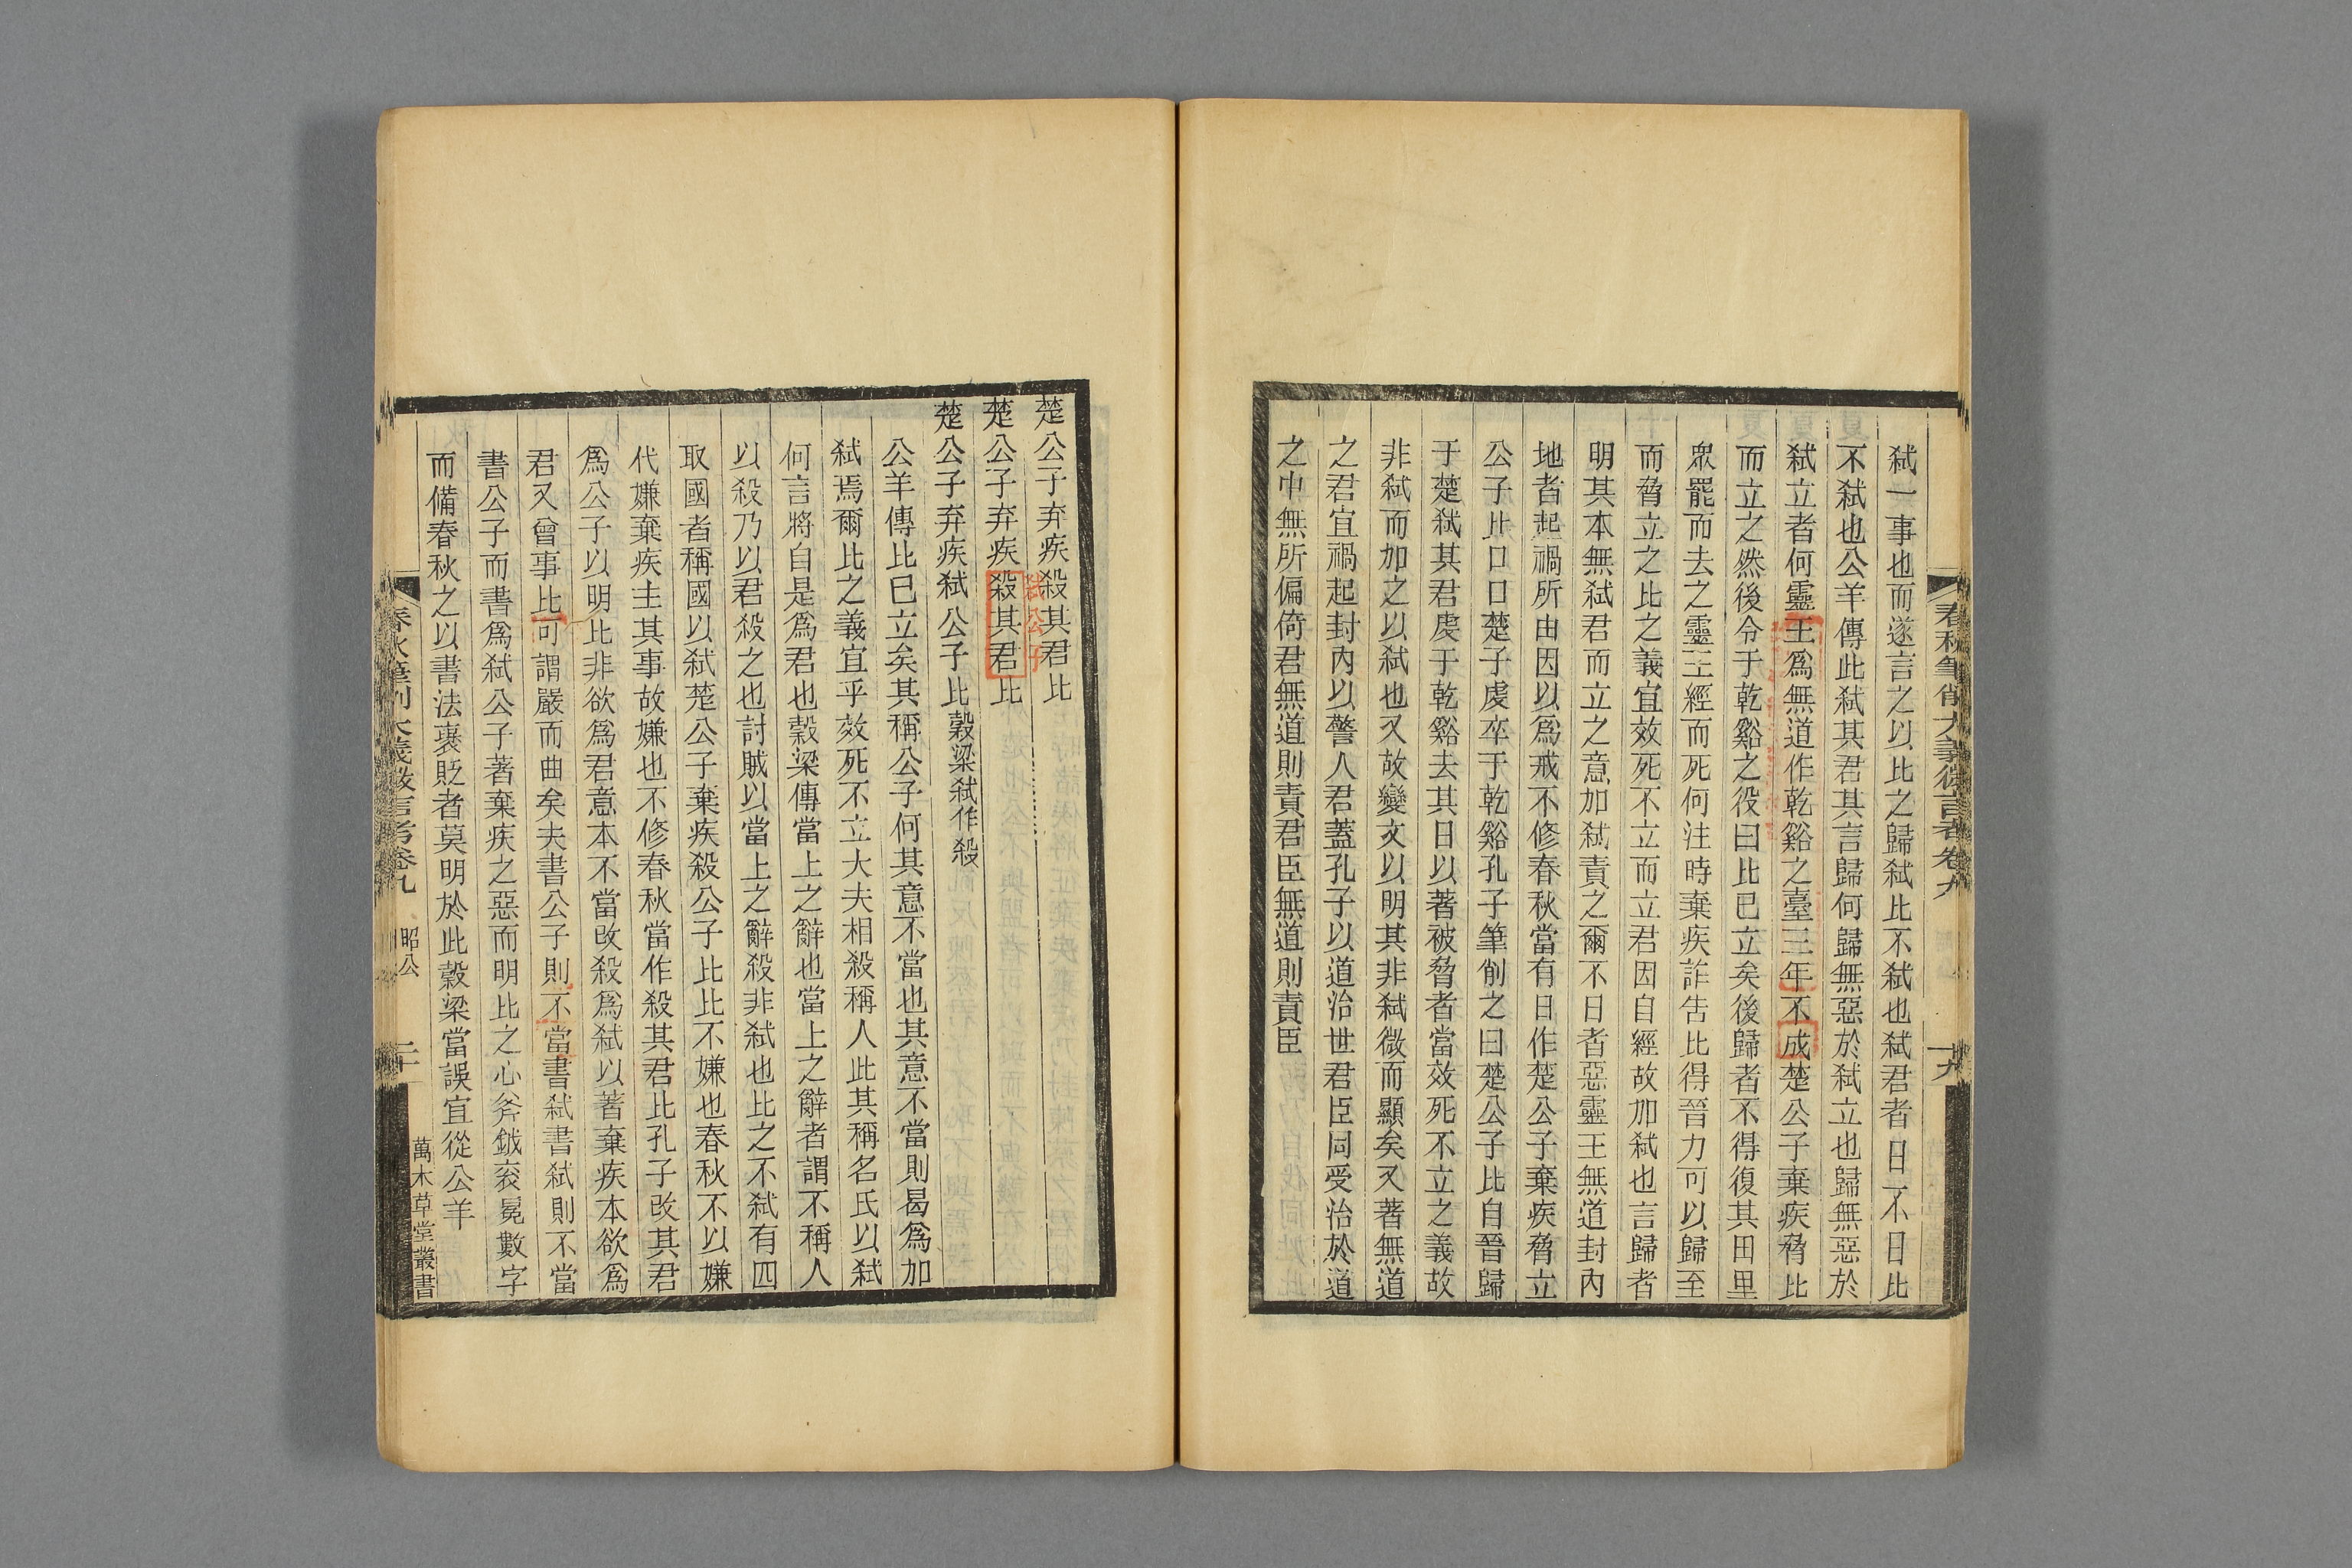 春秋筆削大義微言考卷九
十九
弑一事也而遂言之以比之歸弑比不弑也弑君者日不日比
不弑也公羊傳此弑其君其言歸何歸無惡於弑立也歸無惡於
弑立者何靈王爲無道作乾谿之臺三年不成楚公子棄疾脅比
而立之然後令于乾谿之役曰比已立矣後歸者不得復其田里
眾罷而去之靈王經而死何注時棄疾詐告比得晉力可以歸至
而脅立之比之義宜效死不立而立君因自經故加弑也言歸者
明其本無弑君而立之意加弑責之爾不日者惡靈王無道封內
地者起禍所由因以爲戒不修春秋當有日作楚公子棄疾脅立
公子比口口楚子虔卒于乾谿孔子筆削之曰楚公子比自晉歸
于楚弑其君虔于乾谿去其日以著被脅者當效死不立之義故
非弑而加之以弑也又故變文以明其非弑微而顯矣又著無道
之君宜禍起封內以警人君蓋孔子以道治世君臣同受治於道
之中無所偏倚君無道則責君臣無道則責臣
楚公子弃疾殺其君比
弑公子
楚公子弃疾殺其君比
楚公子弃疾弑公子比穀梁弑作殺
公羊傳比已立矣其稱公子何其意不當也其意不當則曷爲加
弑焉爾比之義宜乎效死不立大夫相殺稱人此其稱名氏以弑
何言將自是爲君也穀梁傳當上之辭也當上之辭者謂不稱人
以殺乃以君殺之也討賊以當上之辭殺非弑也比之不弑有四
取國者稱國以弑楚公子棄疾殺公子比比不嫌也春秋不以嫌
代嫌棄疾主其事故嫌也不修春秋當作殺其君比孔子改其君
爲公子以明比非欲爲君意本不當改殺爲弑以著棄疾本欲爲
君又曾事比可謂嚴而曲矣夫書公子則不當書弑書弑則不當
書公子而書爲弑公子著棄疾之惡而明比之心斧鉞衮冕數字
而備春秋之以書法褒貶者莫明於此穀梁當誤宜從公羊
春秋筆削大義微言考卷九 昭公 二十 萬木草堂叢書